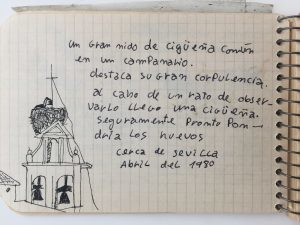 un gran nido de cigüeña común
en un campanario.
destaca su gran corpulencia.
al cabo de un rato de obser-
varlo llego una cigüeña.
seguramente pronto pon-
dria los huevos
cerca de sevilla
Abril del 1980